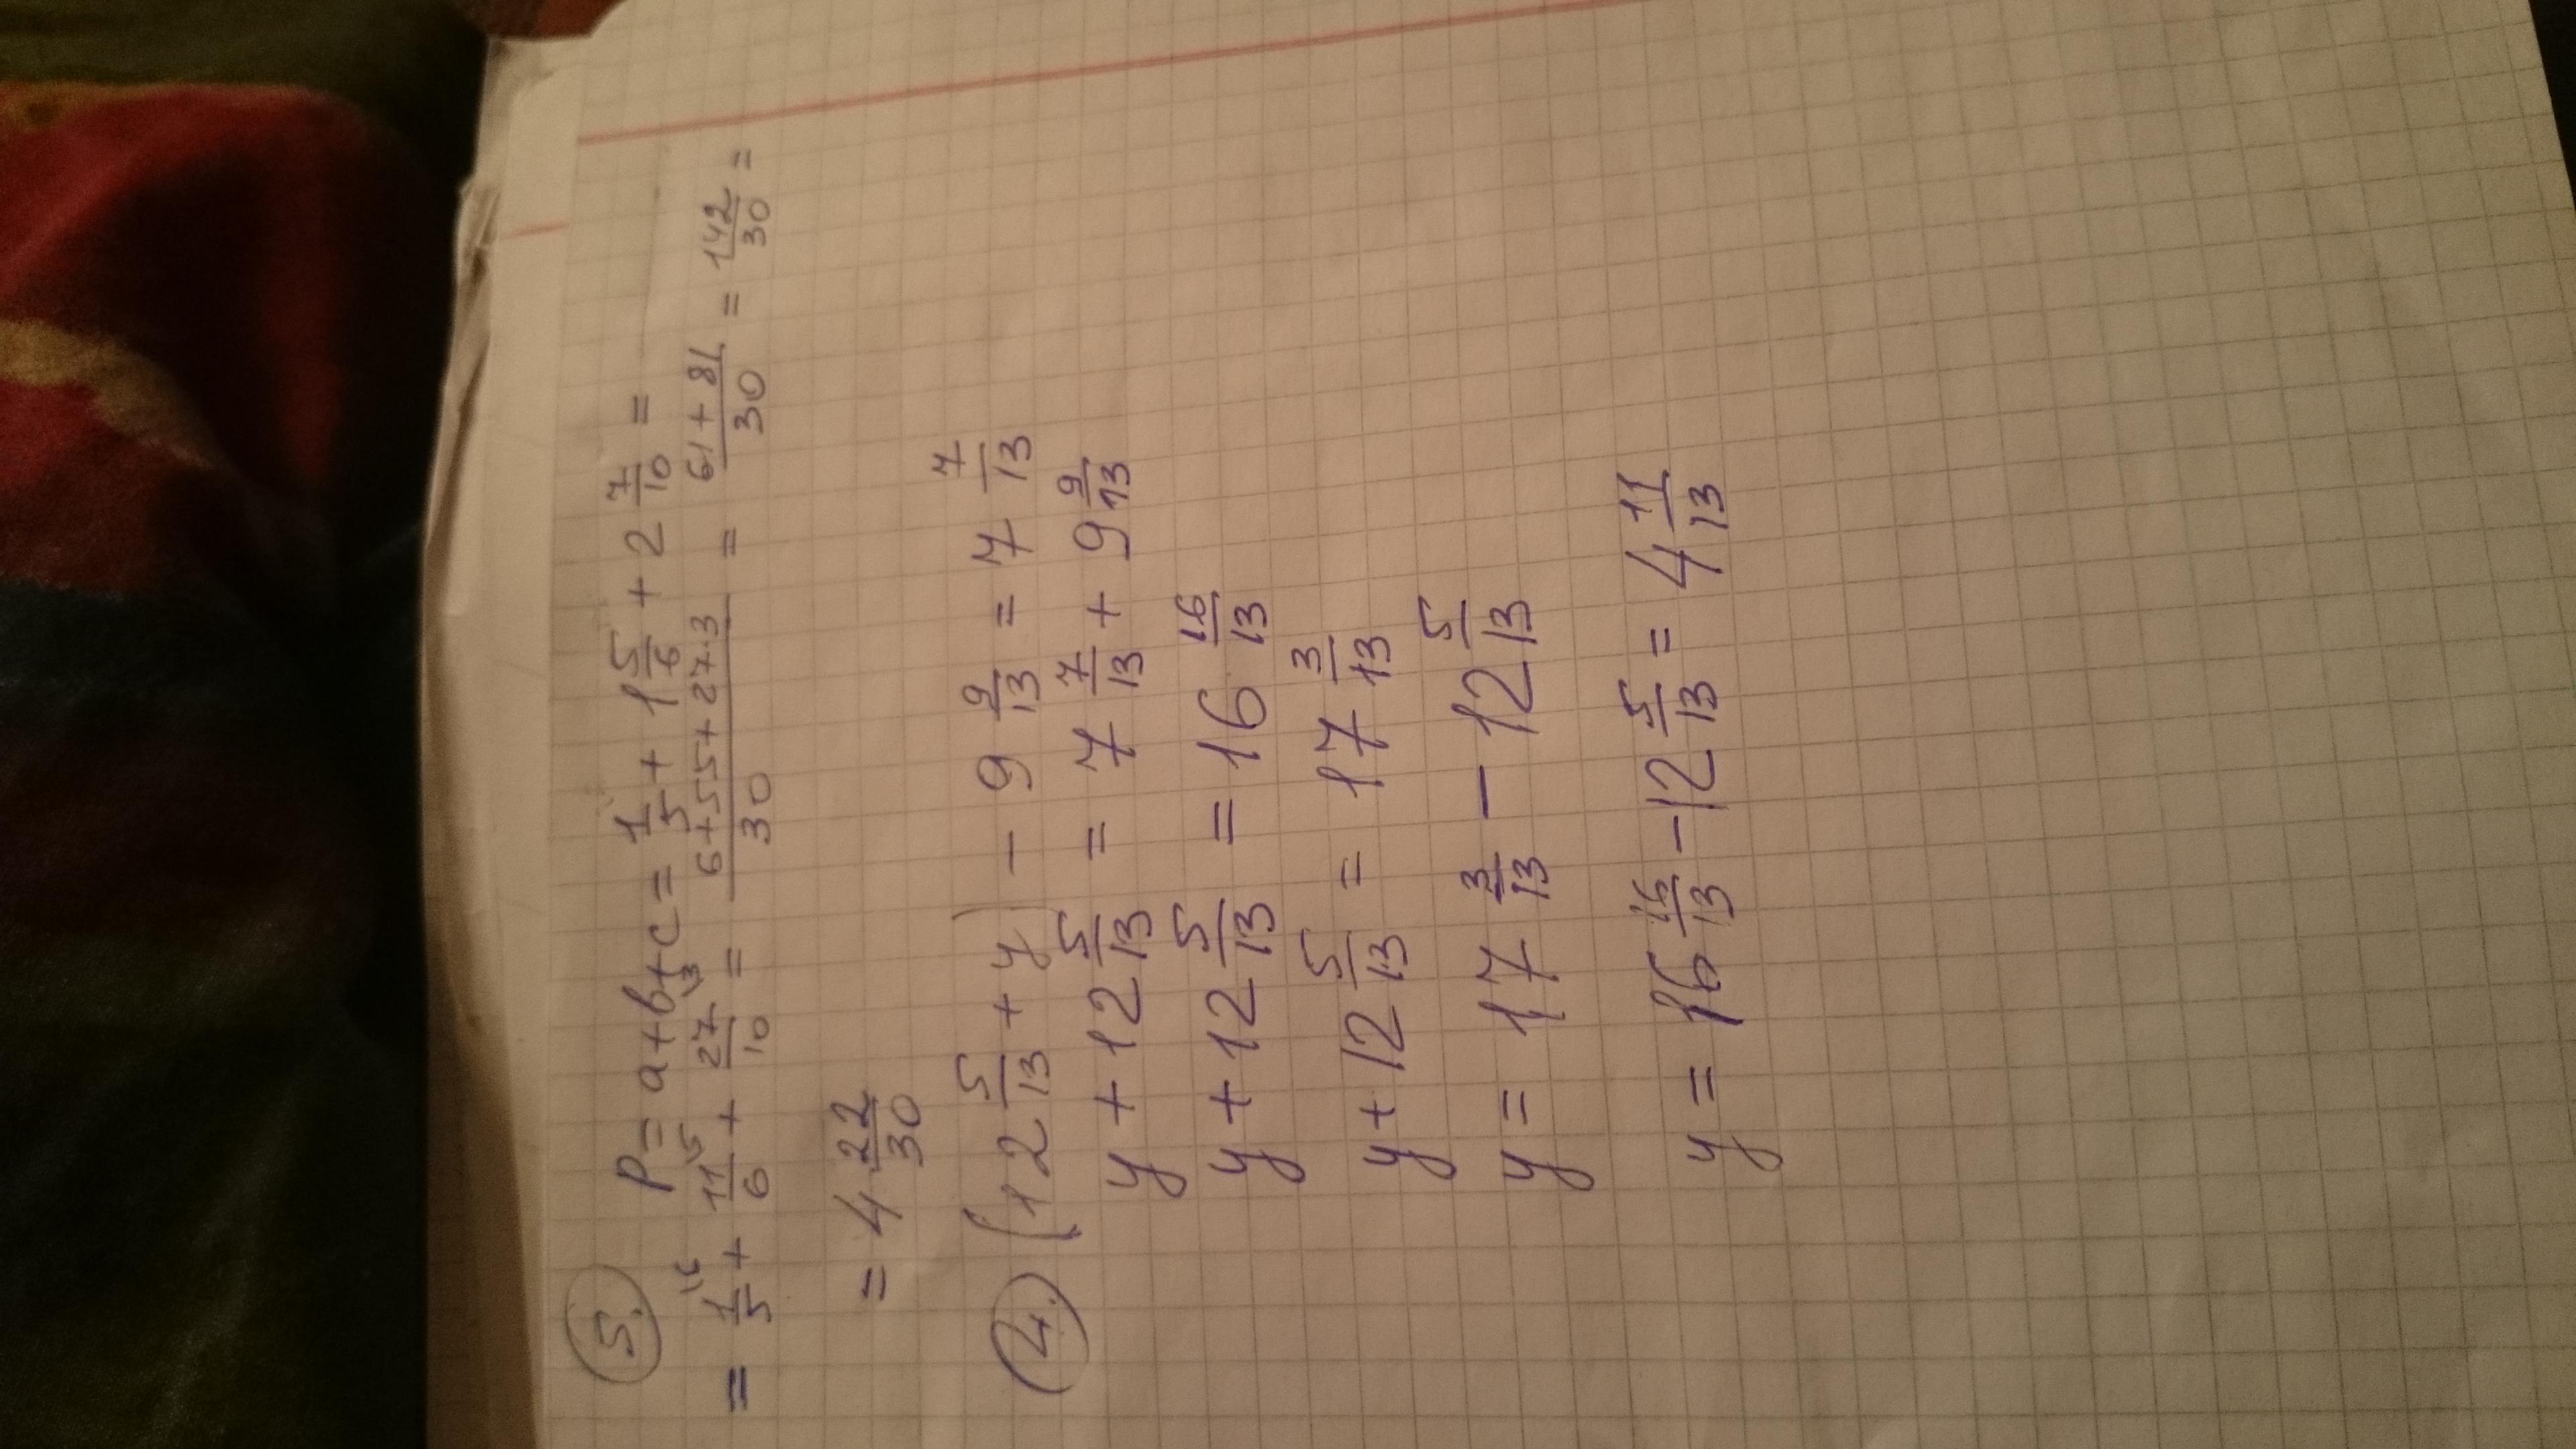 5. P = a+b+c = 1/5 + 1 5/6 + 2 7/10 =
= 1/5 \6 + 11/6 \5 + 27/10 \3 = (6+55+27·3)/30 = (61+81)/30 = 142/30 =
= 4 22/30
4. (12 5/13 + y) - 9 9/13 = 7 7/13
y + 12 5/13 = 7 7/13 + 9 9/13
y + 12 5/13 = 16 16/13
y + 12 5/13 = 17 3/13
y = 17 3/13 - 12 5/13
y = 16 16/13 - 12 5/13 = 4 11/13